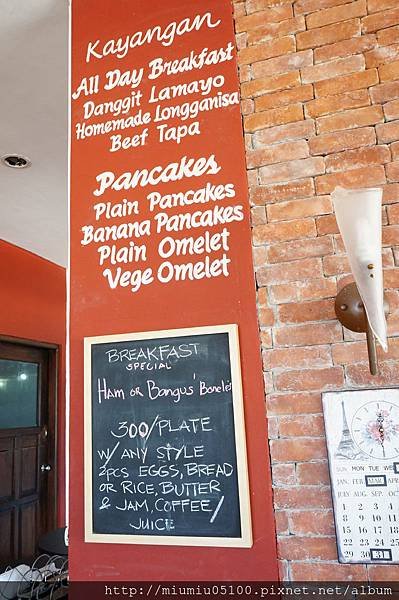 Kayangan
All Day Breakfast
Danggit Lamayo
Homemade Longganisa
Beef Tapa
Pancakes
Plain Pancakes
Banana Pancakes
Plain Omelet
Vege Omelet
BREAKFAST
SPECIAL
HAM OR BANGUS' BONELES
300/PLATE
W/ ANY STYLE
2PCS EGGS, BREAD
OR RICE, BUTTER
& JAM, COFFEE/
JUICE
SUN MON TUE WED
JAN. FEB. MAR. APR.
JULY AUG. SEP. OCT.
1 8 15 22 29
2 9 16 23 30
3 10 17 24 31
http://miumiu05100.pixnet.net/album